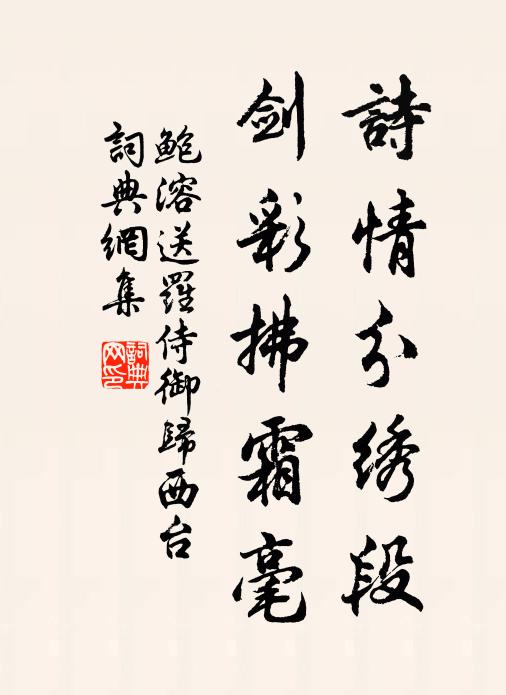 詩情分綉段
剑彩拂霜毫
鲍溶送羅侍御歸西台
詞典網集
詞典网印